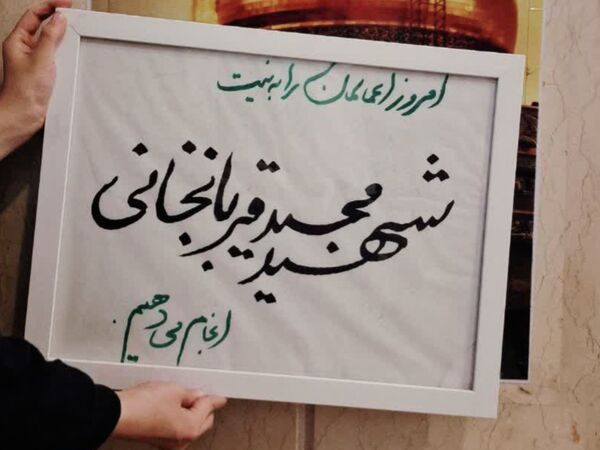 امروز اعمالمان را به نیت
شهید مجید قربانخانی
انجام می دهیم.